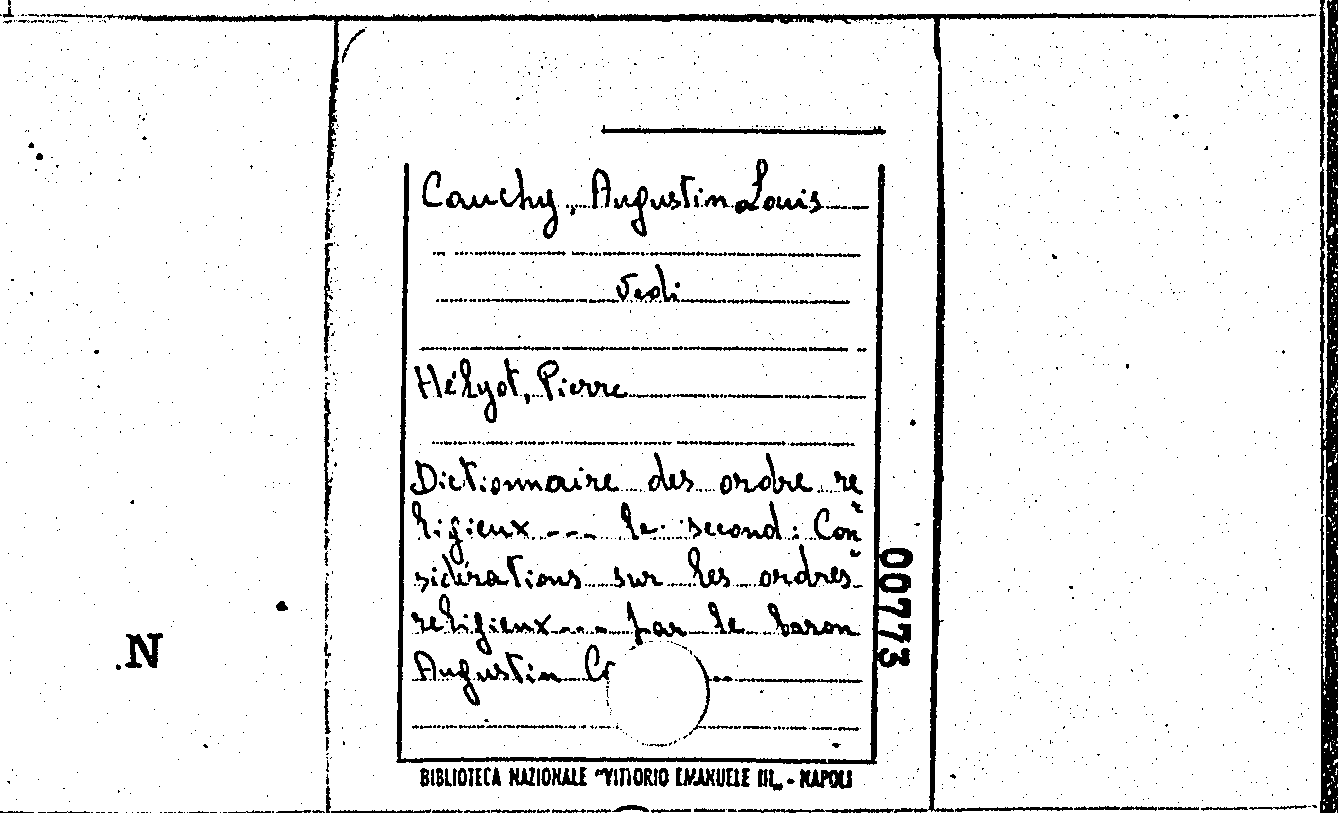 Cauchy, Augustin Louis
Vedi
Hélyot, Pierre
Dictionnaire des ordre re
ligieux --- le second: Con
sidérations sur les ordres
religieux --- par le baron
Augustin
00773
N
BIBLIOTECA NAZIONALE "VITTORIO EMANUELE III„ - NAPOLI